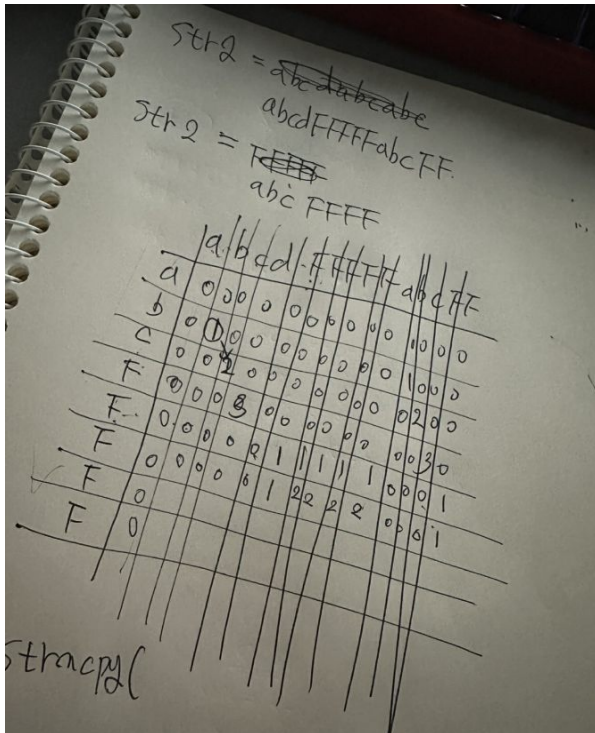 Str2 = abcdabcabc
abcdFFFFFabcFF.
Str2 =
abc FFFF
a b c d F F F F F a b c F F
a 0 0 0 0 0 0 0 0 0 0 1 0 0 0
b 0 1 0 0 0 0 0 0 0 0 1 0 0 0
c 0 0 2 0 0 0 0 0 0 0 0 2 0 0
F 0 0 0 3 0 0 0 0 0 0 0 0 3 0
F 0 0 0 0 0 1 1 1 1 1 0 0 0 1
F 0 0 0 0 0 1 2 2 2 2 0 0 0 1
F 0
F
Strncpy(